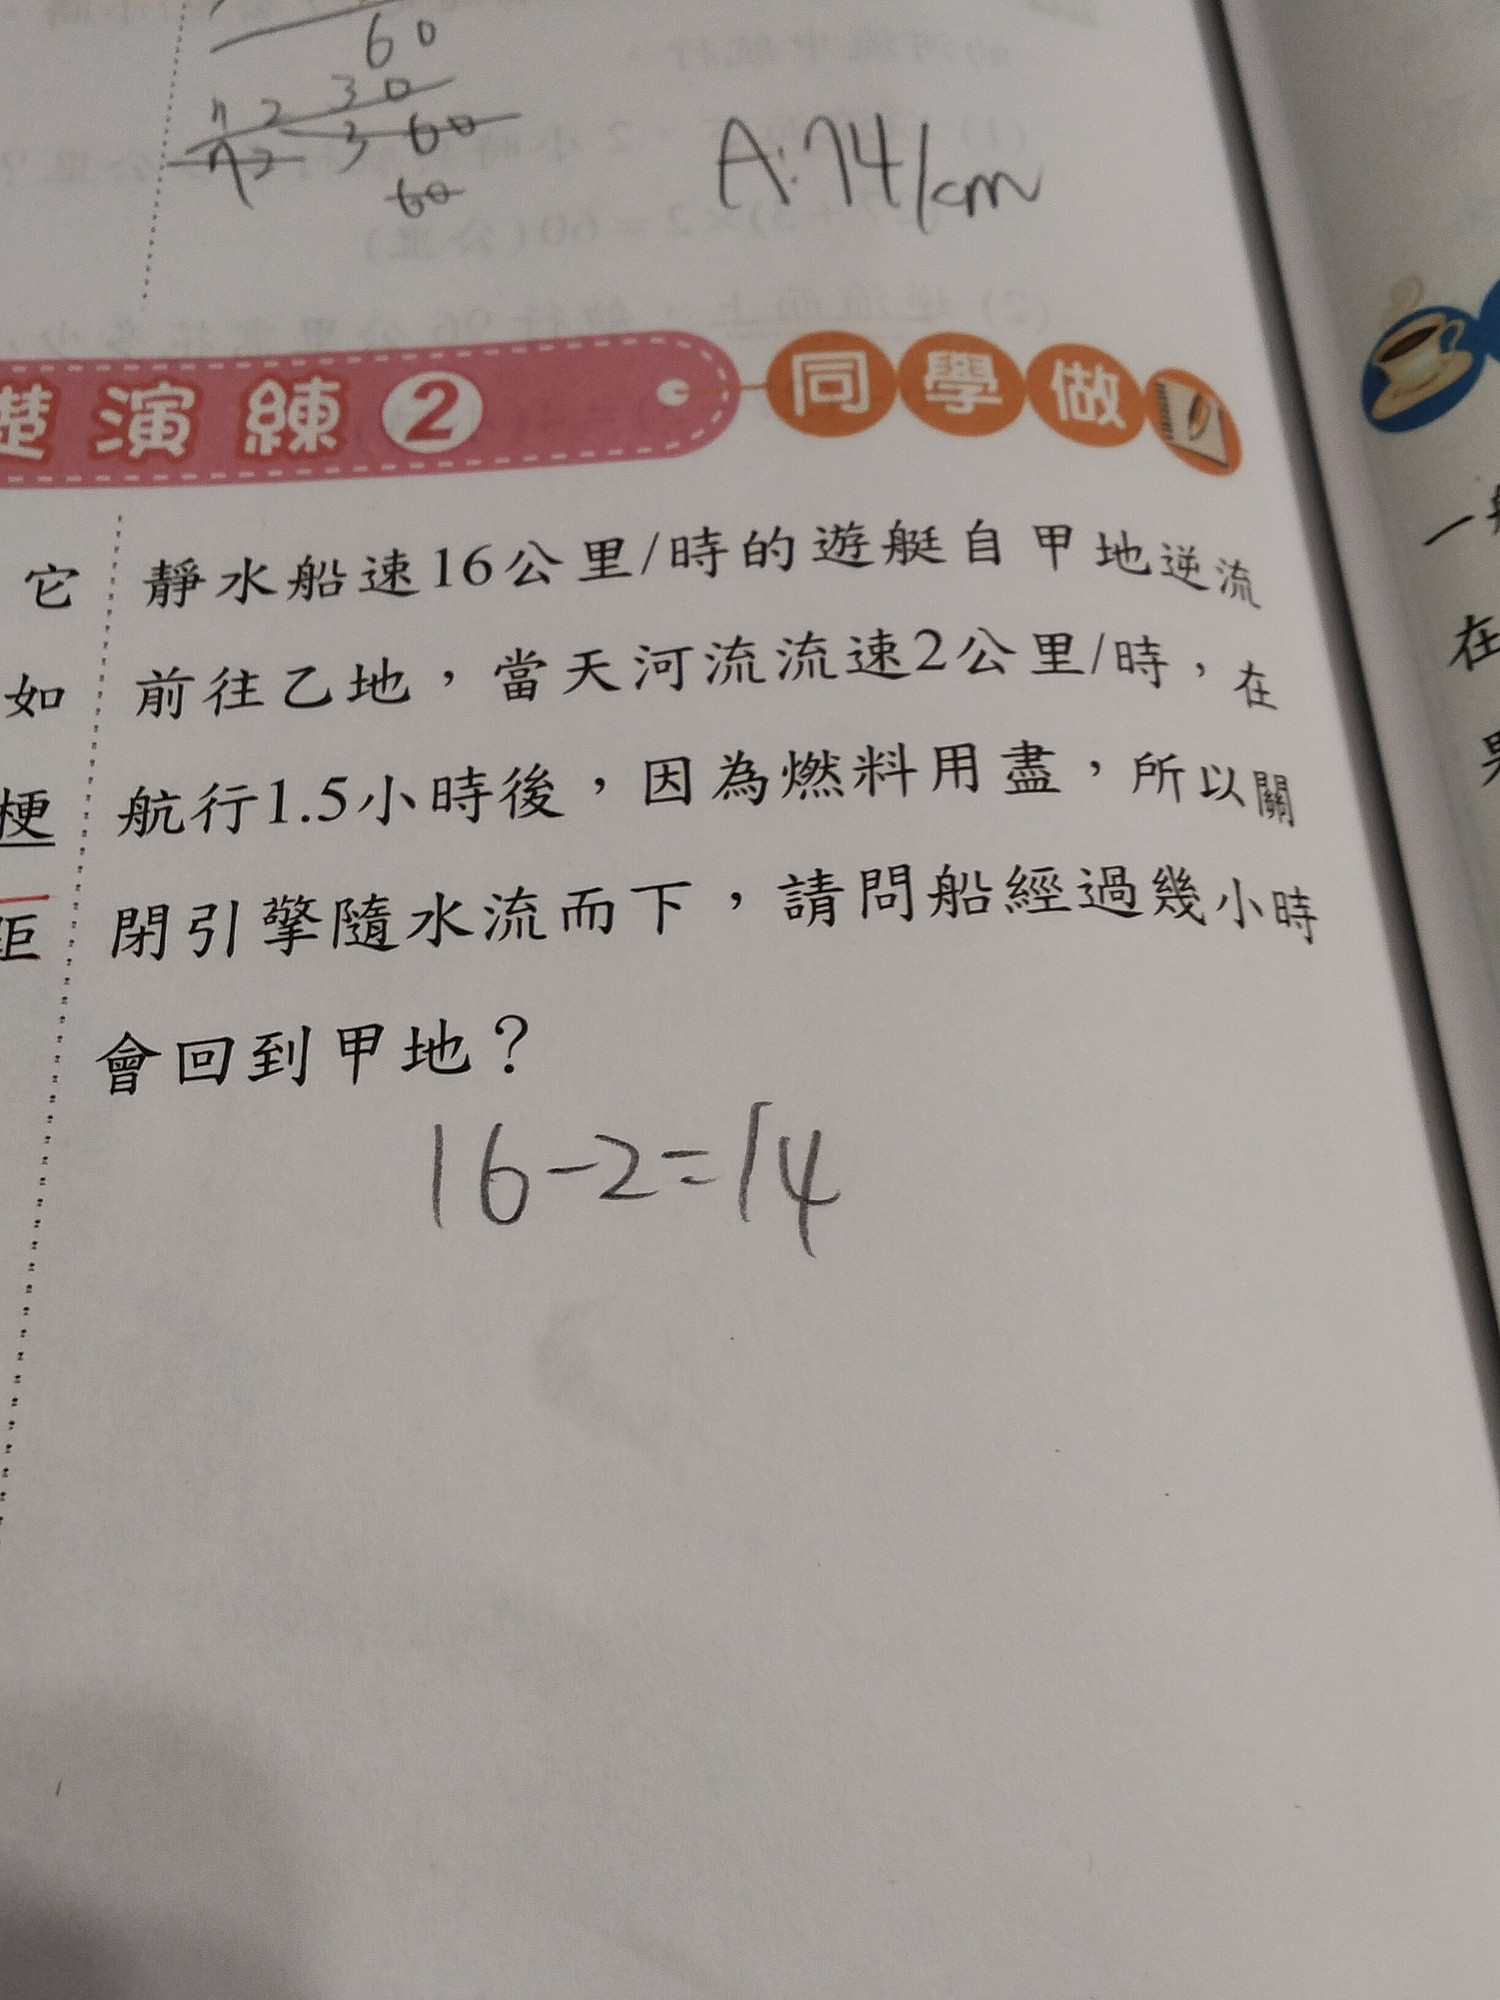 60
30
3 60
60
A:74km
演練2 同學做
它 靜水船速16公里/時的遊艇自甲地逆流
如 前往乙地，當天河流流速2公里/時，在
梗 航行1.5小時後，因為燃料用盡，所以關
閉引擎隨水流而下，請問船經過幾小時
會回到甲地？
16-2=14
一
在